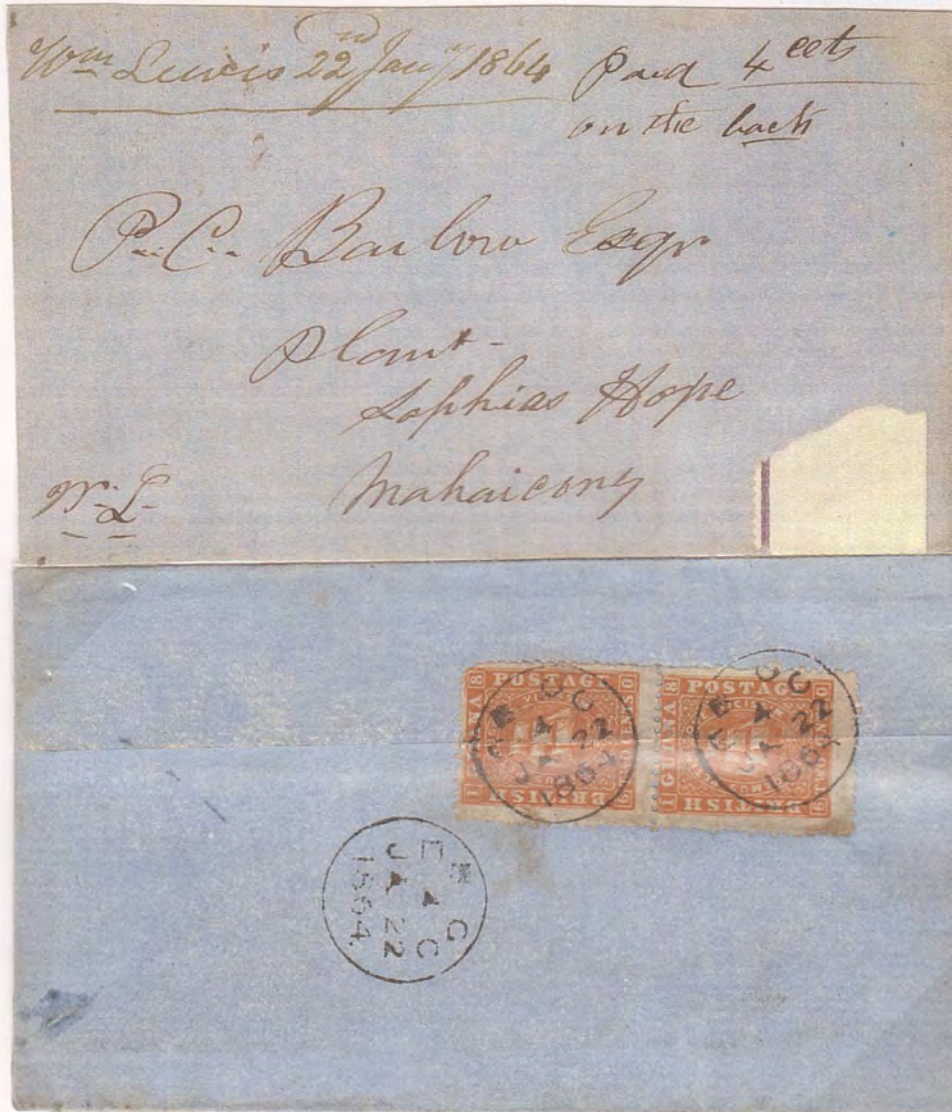 Wm Lewis 22nd Jany 1864
Paid 4 cets
on the back
P. C. Barlow Esqr
Plant-
Sophias Hope
Mahaicony
W. L.
POSTAGE
BRITISH
GUIANA
POSTAGE
BRITISH
GUIANA
A
JA 22
1864
A
JA 22
1864
E C C
A
JA 22
1864.